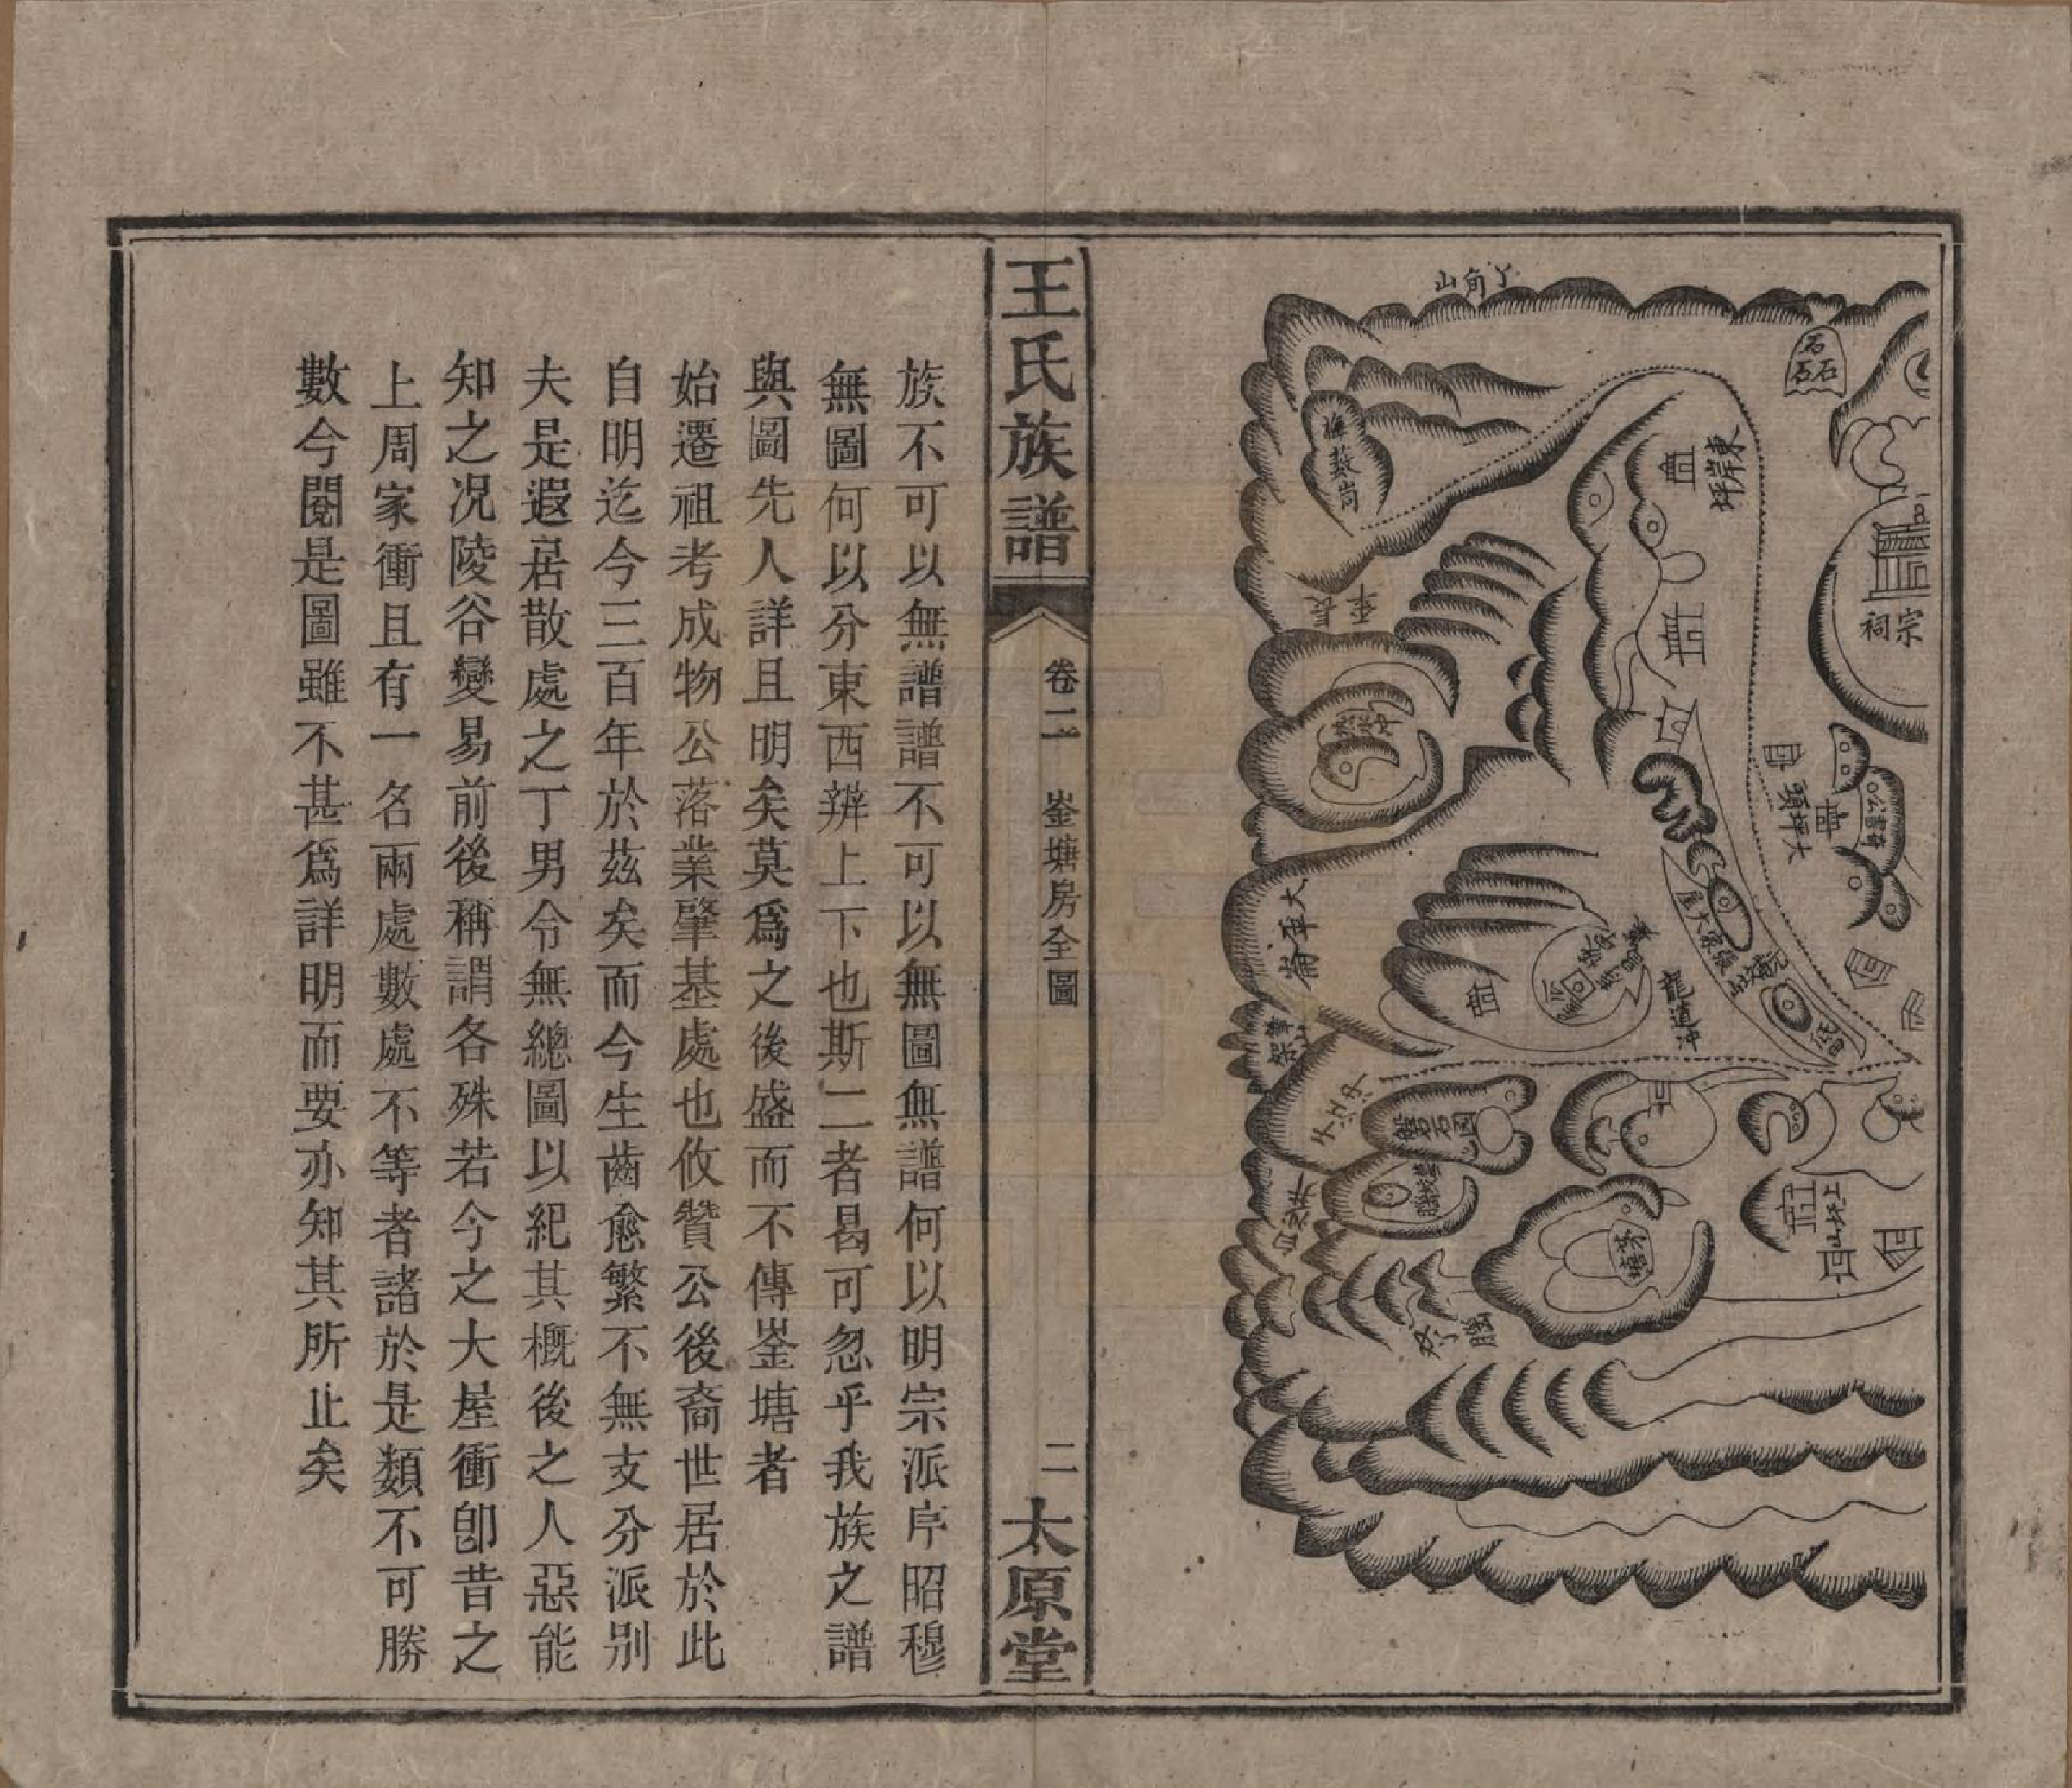 丫角山
石石石
東岸坪
宗祠
長平
大坪頭
大平崙
筆架山
張家大屋
龍道冲
磐石園
上坵山
茅塘
王氏族譜
卷二
崟塘房全圖
二
太原堂
族不可以無譜譜不可以無圖無譜何以明宗派序昭穆
無圖何以分東西辨上下也斯二者曷可忽乎我族之譜
與圖先人詳且明矣莫爲之後盛而不傳崟塘者
始遷祖考成物公落業肇基處也攸贊公後裔世居於此
自明迄今三百年於茲矣而今生齒愈繁不無支分派别
夫是遐居散處之丁男令無總圖以紀其概後之人惡能
知之况陵谷變易前後稱謂各殊若今之大屋衝卽昔之
上周家衝且有一名兩處數處不等者諸於是類不可勝
數今閱是圖雖不甚爲詳明而要亦知其所止矣